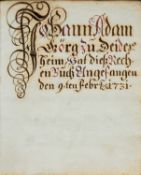 Johann Adam
Görg zu Deides
heim, Hat dieß Rech
en Buch Angefangen
den 9ten febr: 1731